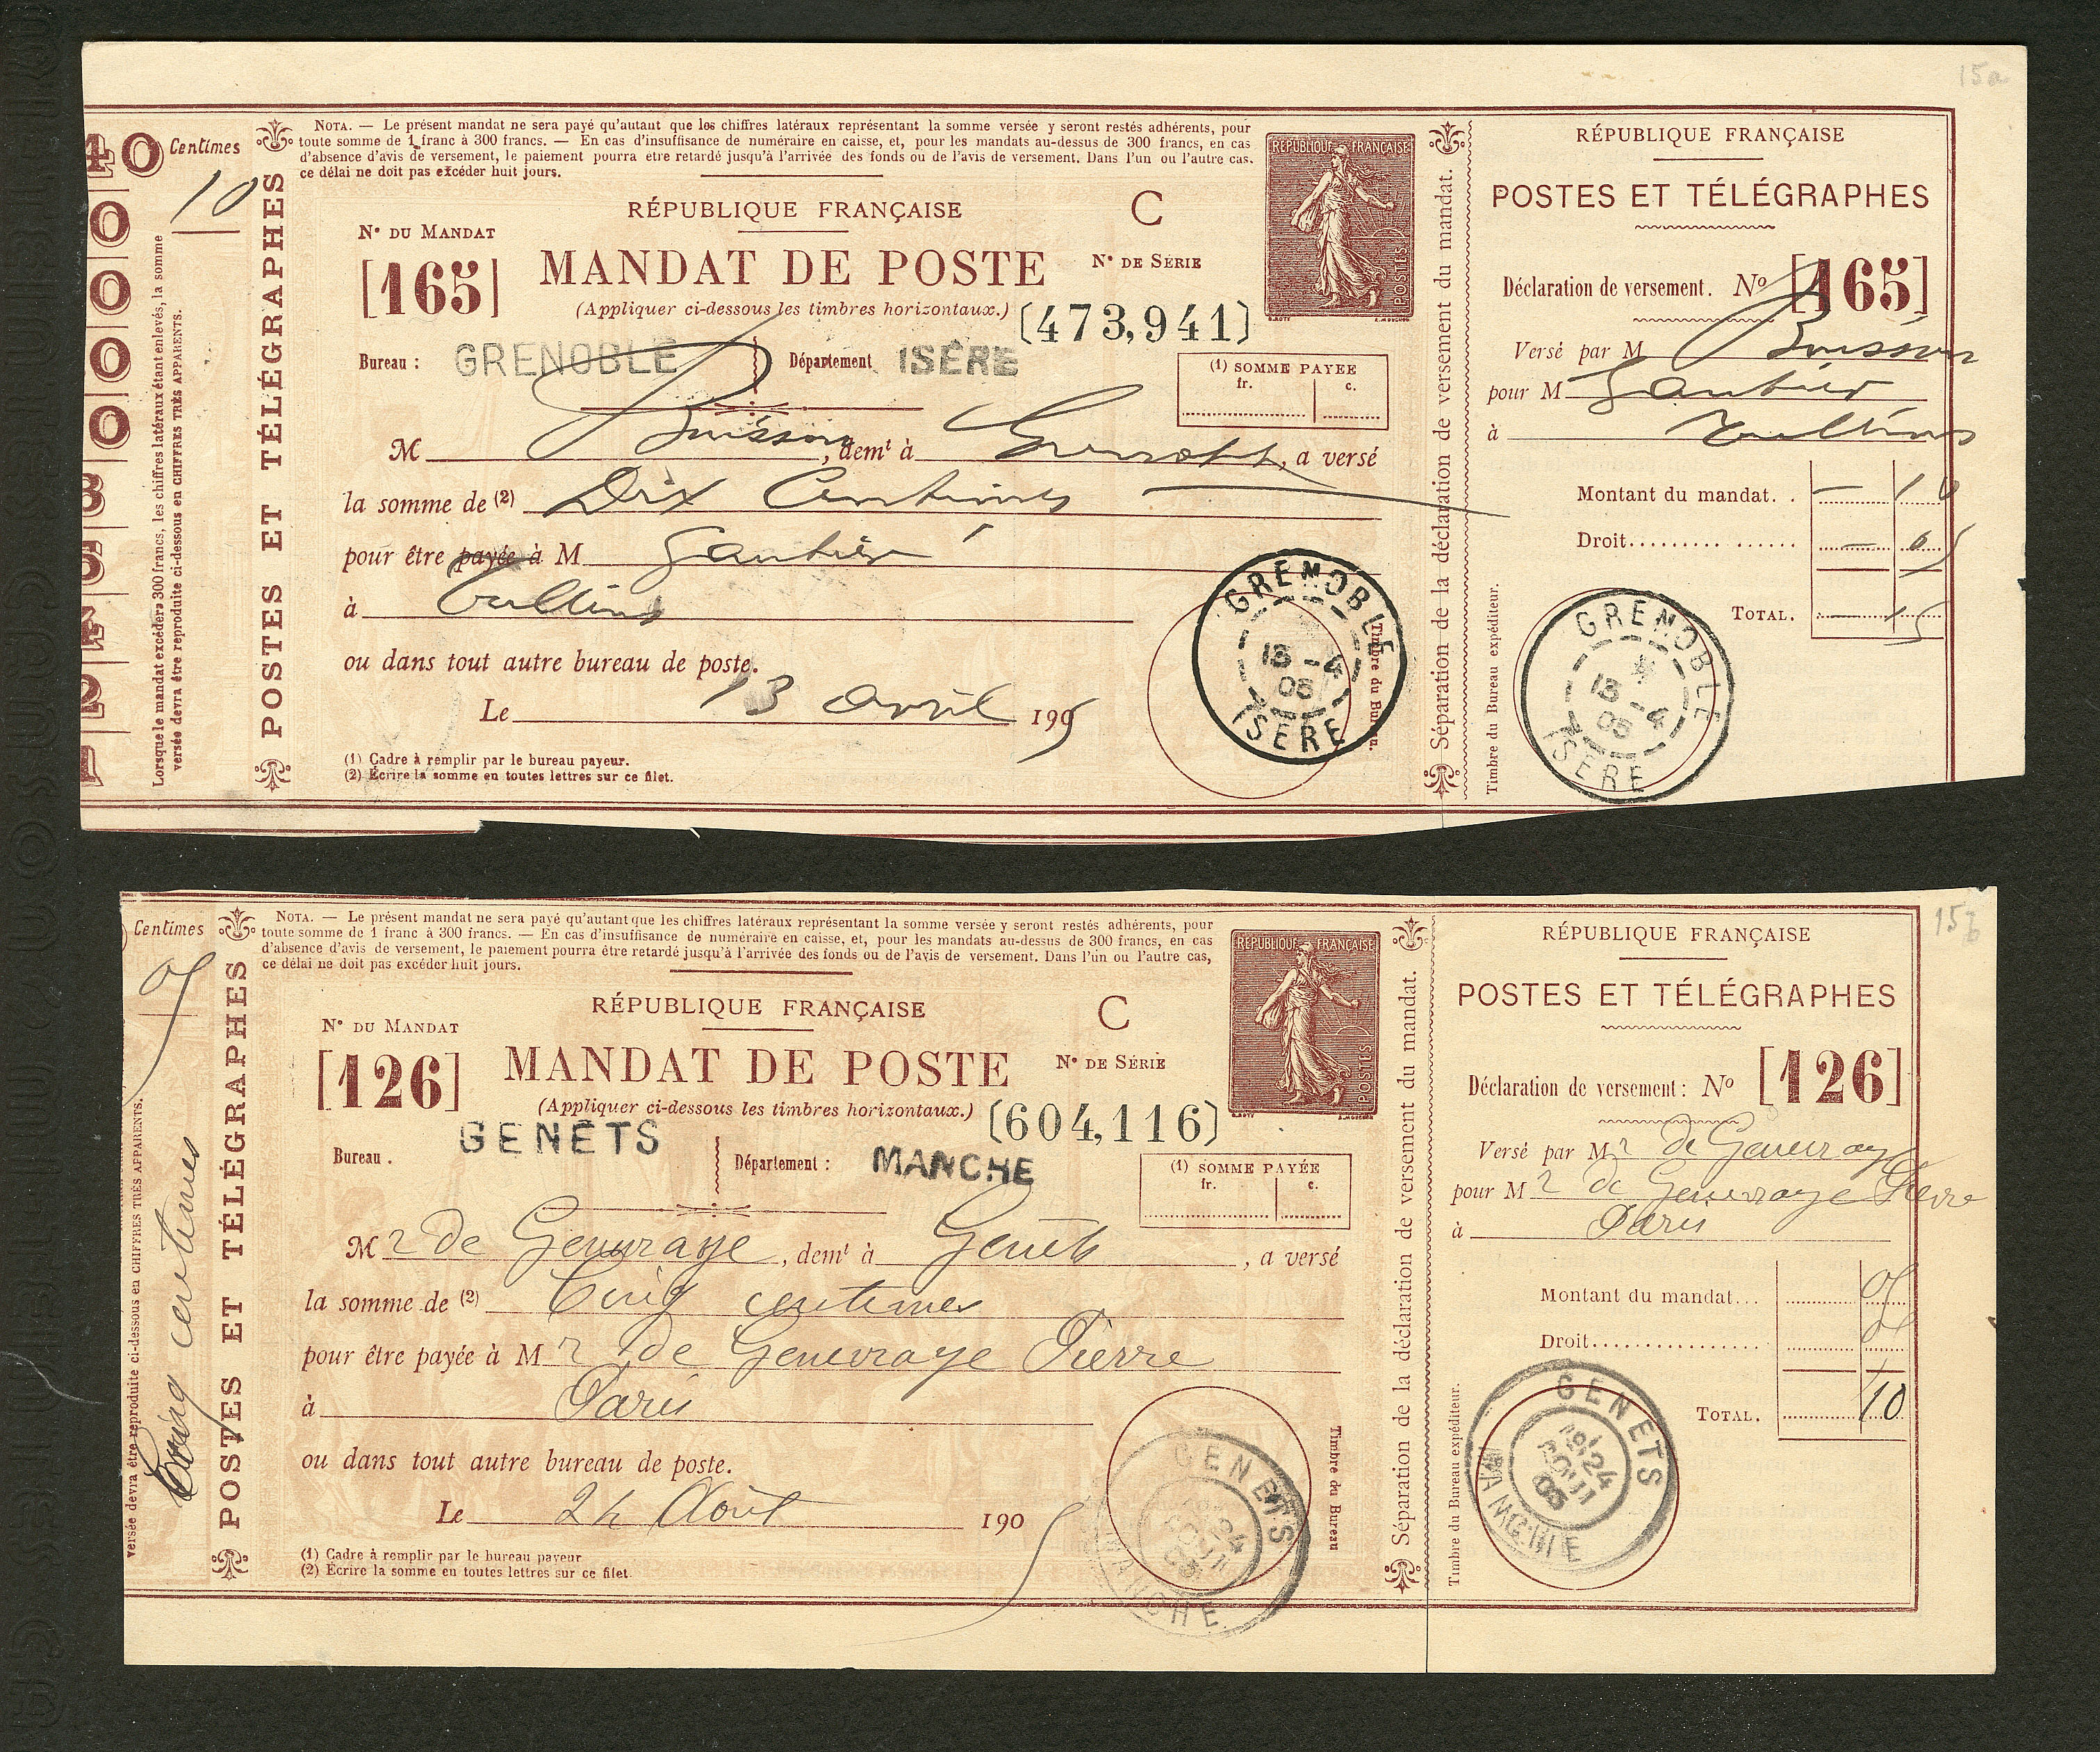 15a
40 Centimes
10
0
0
0
0
8
5
4
2
1
Lorsque le mandat excédera 300 francs, les chiffres latéraux étant enlevés, la somme
versée devra être reproduite ci-dessous en CHIFFRES TRÈS APPARENTS.
POSTES ET TÉLÉGRAPHES
NOTA. — Le présent mandat ne sera payé qu'autant que les chiffres latéraux représentant la somme versée y seront restés adhérents, pour
toute somme de 1 franc à 300 francs. — En cas d'insuffisance de numéraire en caisse, et, pour les mandats au-dessus de 300 francs, en cas
d'absence d'avis de versement, le paiement pourra être retardé jusqu'à l'arrivée des fonds ou de l'avis de versement. Dans l'un ou l'autre cas,
ce délai ne doit pas excéder huit jours.
RÉPUBLIQUE FRANÇAISE
C
N° DU MANDAT
[165]
MANDAT DE POSTE
N° DE SÉRIE
(Appliquer ci-dessous les timbres horizontaux.)
[473,941]
RÉPUBLIQUE FRANÇAISE
POSTES
Bureau : GRENOBLE
Département ISÈRE
(1) SOMME PAYÉE
fr. c.
M Buisson, demt à Grenoble, a versé
la somme de (2) Dix Centimes
pour être payée à M Gautier
à Tullins
ou dans tout autre bureau de poste.
Le 13 avril 1905
(1) Cadre à remplir par le bureau payeur.
(2) Écrire la somme en toutes lettres sur ce filet.
GRENOBLE
13 -4
05
ISERE
Timbre du Bureau.
Séparation de la déclaration de versement du mandat.
RÉPUBLIQUE FRANÇAISE
POSTES ET TÉLÉGRAPHES
Déclaration de versement. N° [165]
Versé par M Buisson
pour M Gautier
à Tullins
Montant du mandat. . — 10
Droit — 05
TOTAL. — 15
Timbre du Bureau expéditeur.
GRENOBLE
13 -4
05
ISERE
15b
Centimes
05
Cinq centimes
versée devra être reproduite ci-dessous en CHIFFRES TRÈS APPARENTS.
POSTES ET TÉLÉGRAPHES
NOTA. — Le présent mandat ne sera payé qu'autant que les chiffres latéraux représentant la somme versée y seront restés adhérents, pour
toute somme de 1 franc à 300 francs. — En cas d'insuffisance de numéraire en caisse, et, pour les mandats au-dessus de 300 francs, en cas
d'absence d'avis de versement, le paiement pourra être retardé jusqu'à l'arrivée des fonds ou de l'avis de versement. Dans l'un ou l'autre cas,
ce délai ne doit pas excéder huit jours.
RÉPUBLIQUE FRANÇAISE
C
N° DU MANDAT
[126]
MANDAT DE POSTE
N° DE SÉRIE
(Appliquer ci-dessous les timbres horizontaux.)
[604,116]
RÉPUBLIQUE FRANÇAISE
POSTES
Bureau . GENETS
Département : MANCHE
(1) SOMME PAYÉE
fr. c.
Mr de Genevraye, demt à Genêts, a versé
la somme de (2) Cinq centimes
pour être payée à Mr de Genevraye Pierre
à Paris
ou dans tout autre bureau de poste.
Le 24 Août 1905
(1) Cadre à remplir par le bureau payeur
(2) Écrire la somme en toutes lettres sur ce filet.
GENETS
MANCHE
Timbre du Bureau
Séparation de la déclaration de versement du mandat.
RÉPUBLIQUE FRANÇAISE
POSTES ET TÉLÉGRAPHES
Déclaration de versement : N° [126]
Versé par Mr de Genevraye
pour Mr de Genevraye Pierre
à Paris
Montant du mandat... 05
Droit 05
TOTAL. 10
Timbre du Bureau expéditeur.
GENETS
24
AOUT
05